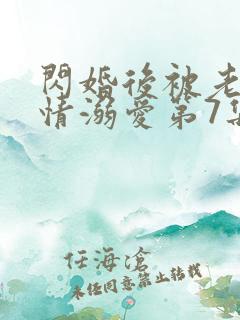 閃婚後被老
情溺愛第7集
任海滄
未經同意禁止轉載